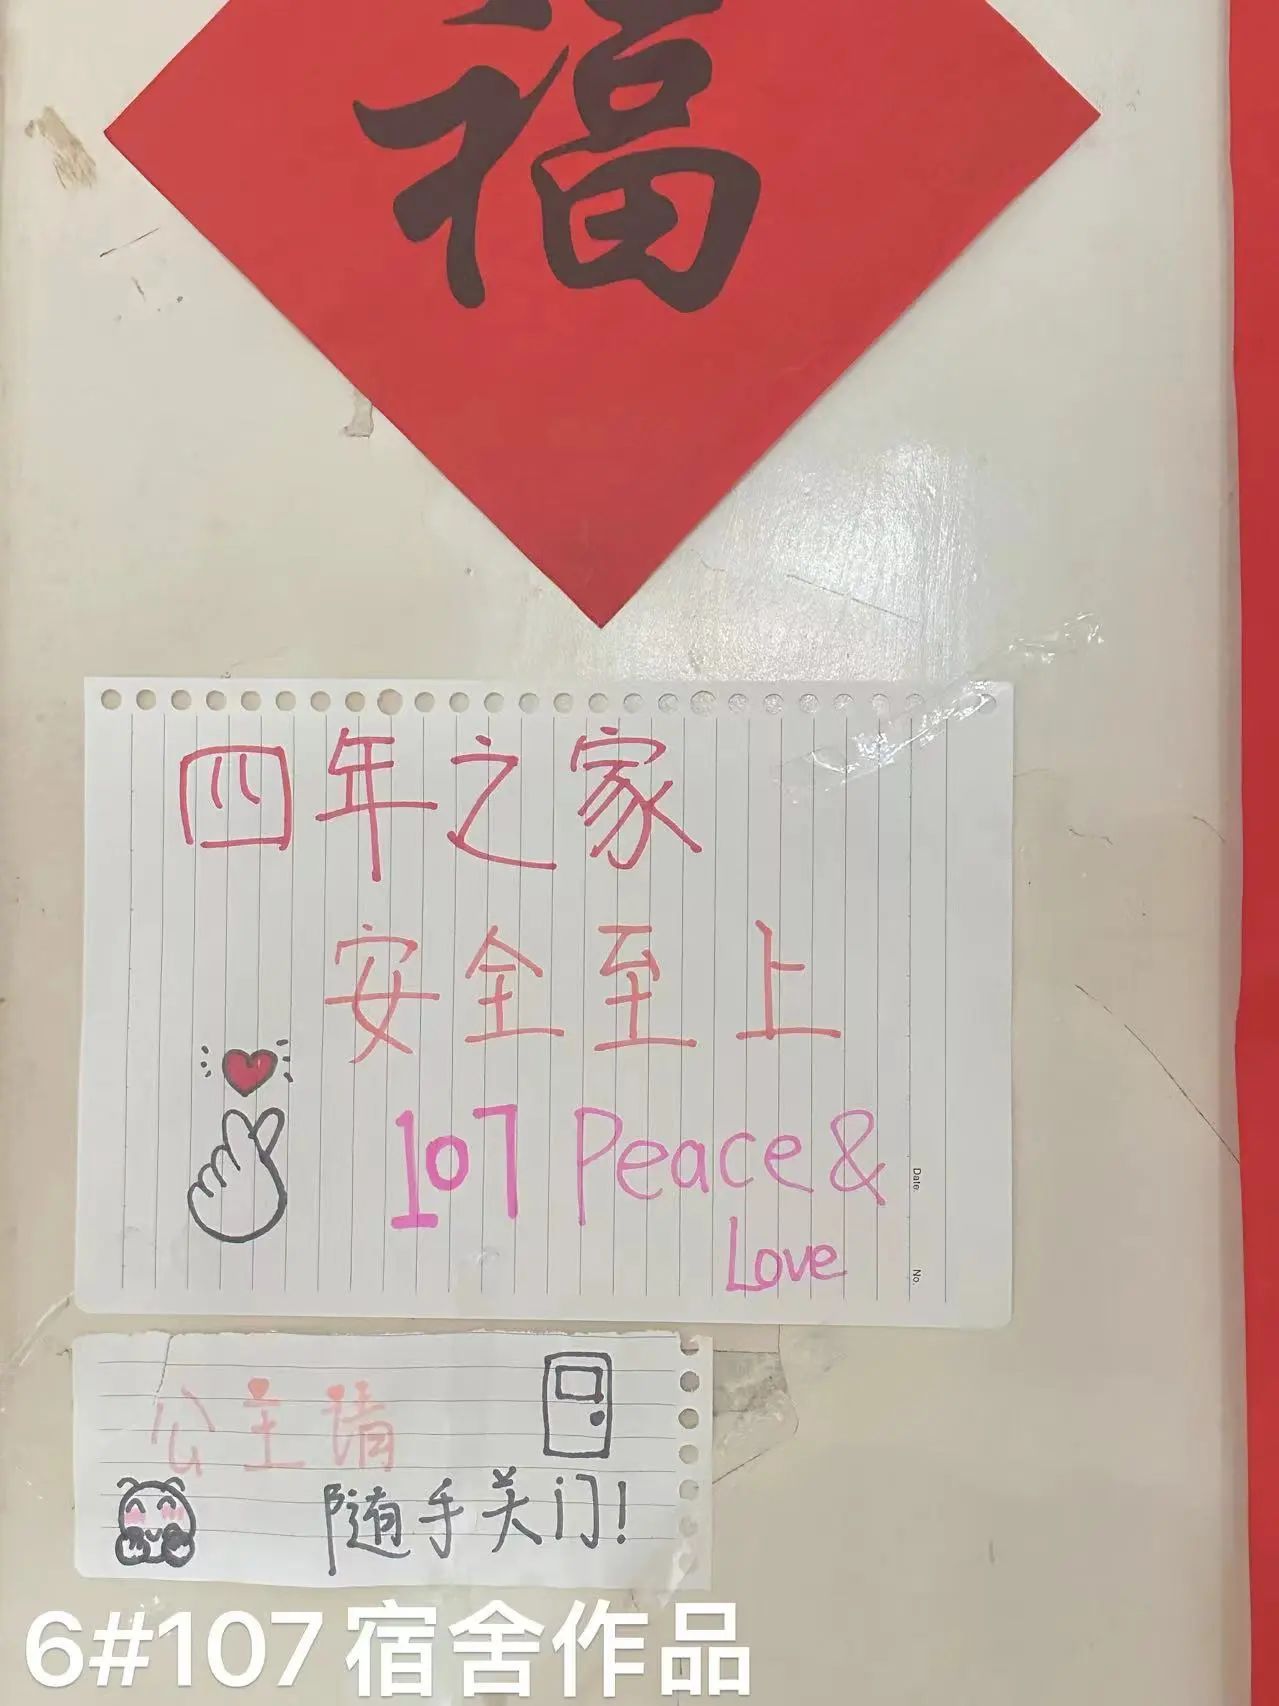 福
四年之家
安全至上
107 Peace &
Love
Date
No.
公主请
随手关门!
6#107宿舍作品